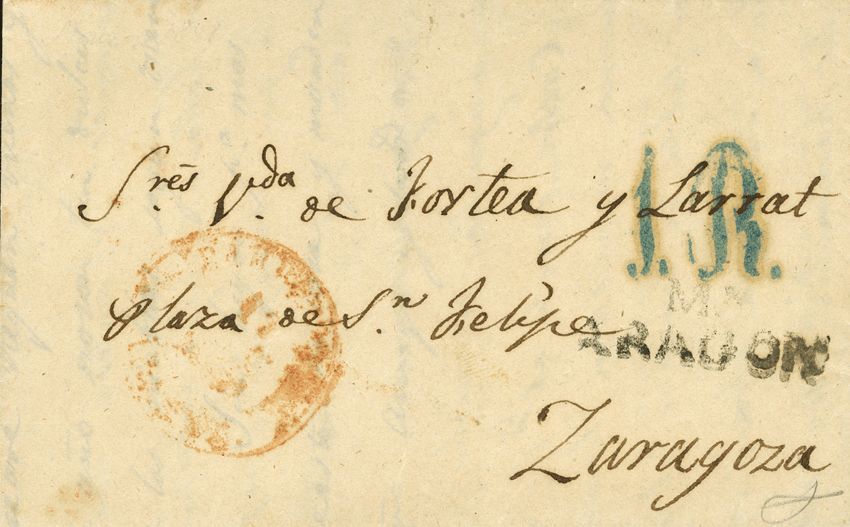 Sres. Vda. de Fortea y Larrat
1.R.
Plaza de Sn. Felipe
ARAGON
Zaragoza